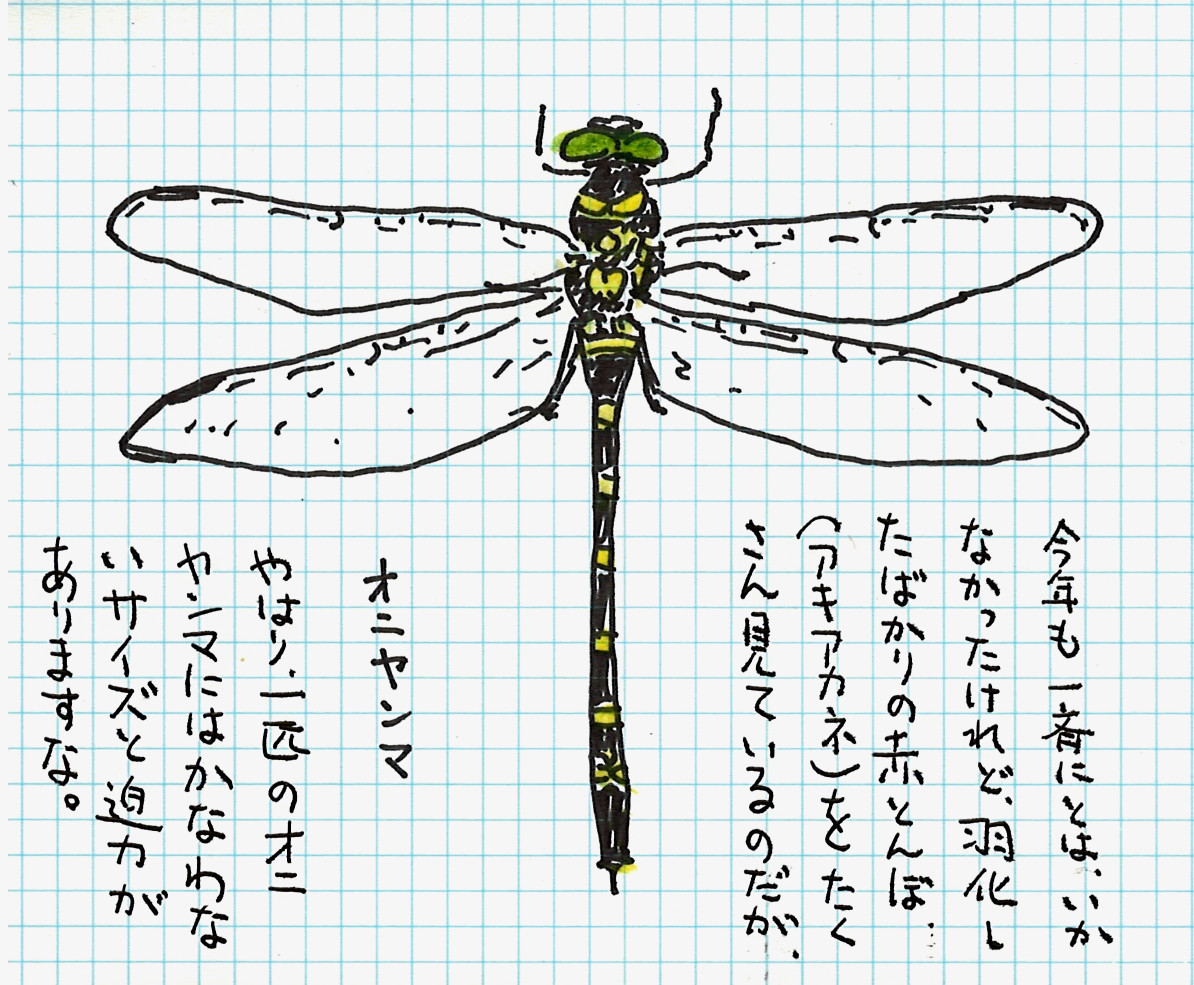 今年も一斉にとは、いか
なかったけれど、羽化し
たばかりの赤とんぼ
(アキアカネ)をたく
さん見ているのだが、
オニヤンマ
やはり、一匹のオニ
ヤンマにはかなわな
いサイズと迫力が
ありますな。